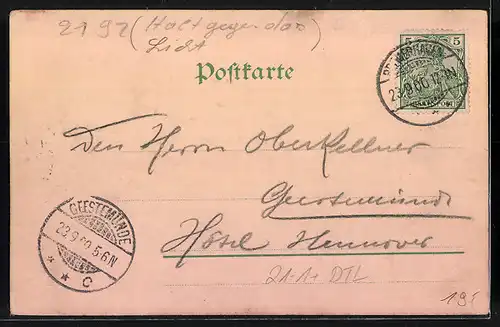 2192 (Halt gegen das
Licht)
Postkarte
BREMERHAVEN
23/9 00
5
Den Herrn Oberkellner
Geestemünde
Hôtel Hannover
GEESTEMÜNDE
23.9.00 5-6N
* * C
21-1+ DTL